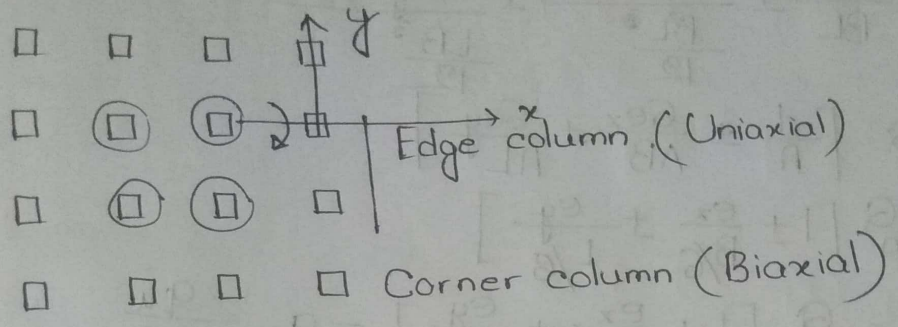 y
x
Edge column (Uniaxial)
Corner column (Biaxial)